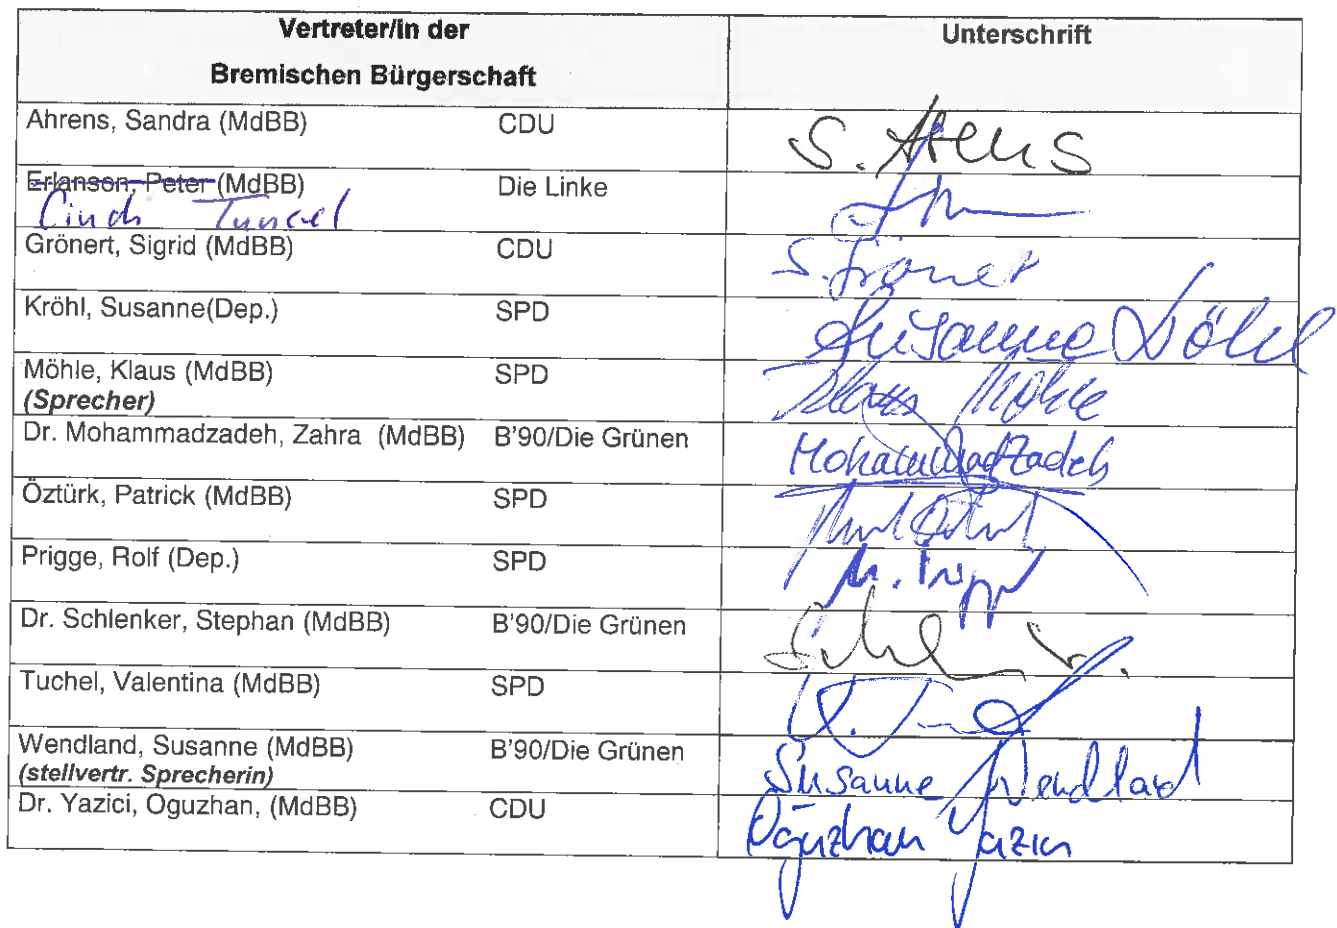 Vertreter/in der Unterschrift
Bremischen Bürgerschaft
Ahrens, Sandra (MdBB) CDU S. Ahrens
Erlanson, Peter (MdBB) Die Linke
Cindi Tuncel
Grönert, Sigrid (MdBB) CDU S. Grönert
Kröhl, Susanne(Dep.) SPD Susanne Kröhl
Möhle, Klaus (MdBB) SPD Klaus Möhle
(Sprecher)
Dr. Mohammadzadeh, Zahra (MdBB) B'90/Die Grünen Mohammadzadeh
Öztürk, Patrick (MdBB) SPD
Prigge, Rolf (Dep.) SPD
Dr. Schlenker, Stephan (MdBB) B'90/Die Grünen
Tuchel, Valentina (MdBB) SPD
Wendland, Susanne (MdBB) B'90/Die Grünen Susanne Wendland
(stellvertr. Sprecherin)
Dr. Yazici, Oguzhan, (MdBB) CDU Oguzhan Yazici